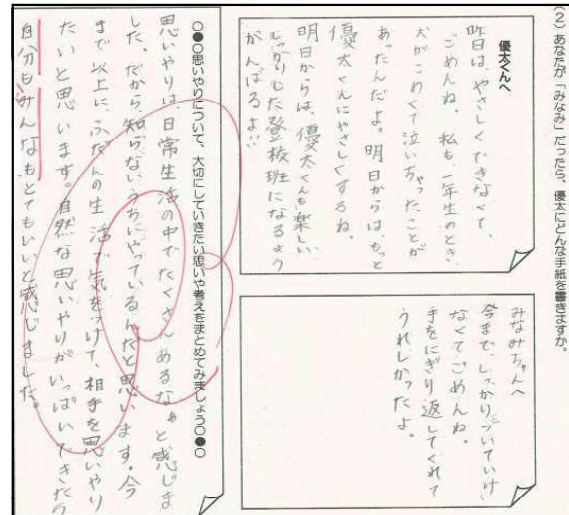 (2) あなたが「みなみ」だったら、優太にどんな手紙を書きますか。
優太くんへ
昨日は、やさしくできなくて、
ごめんね。私も一年生のとき、
犬がこわくて泣いちゃったことが
あったんだよ。明日からは、もっと
優太くんにやさしくするね。
明日からは、優太くんも楽しい、
しっかりした登校班になるよう
がんばるよ!!
みなみちゃんへ
今まで、しっかりついていけ
なくてごめんね。
手をにぎり返してくれて
うれしかったよ。
○●○思いやりについて、大切にしていきたい思いや考えをまとめてみましょう○●○
思いやりは日常生活の中でたくさんあるなぁと感じま
した。だから、知らないうちにやっているんだと思います。今
まで以上に、ふだんの生活で気をつけて、相手を思いやり
たいと思います。自然な思いやりがいっぱいできたら
自分もみんなもとてもいいと感じました。